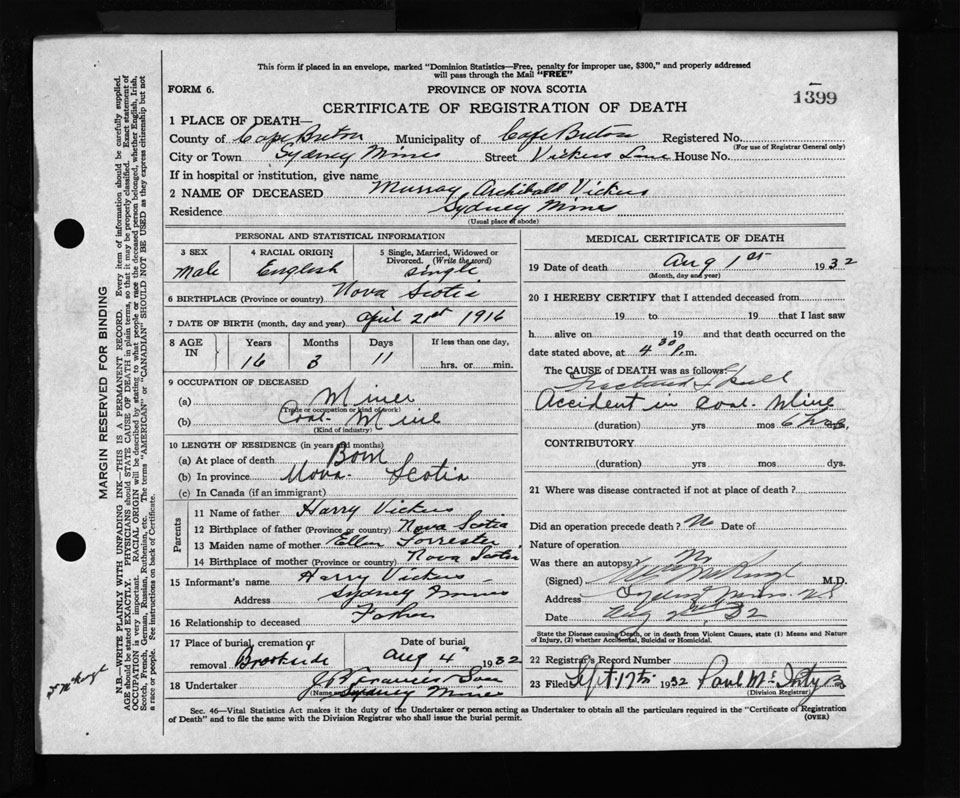 This form if placed in an envelope, marked "Dominion Statistics—Free, penalty for improper use, $300," and properly addressed
will pass through the Mail "FREE"
FORM 6. PROVINCE OF NOVA SCOTIA
1399
CERTIFICATE OF REGISTRATION OF DEATH
1 PLACE OF DEATH—
County of Cape Breton Municipality of Cape Breton Registered No.
(For use of Registrar General only)
City or Town Sydney Mines Street Vickers Lane House No.
If in hospital or institution, give name
2 NAME OF DECEASED Murray Archibald Vickers
Residence Sydney Mines
(Usual place of abode)
PERSONAL AND STATISTICAL INFORMATION
3 SEX 4 RACIAL ORIGIN 5 Single, Married, Widowed or Divorced. (Write the word)
Male English Single
6 BIRTHPLACE (Province or country) Nova Scotia
7 DATE OF BIRTH (month, day and year) April 21st 1916
8 AGE IN Years Months Days If less than one day,
16 3 11 hrs. or min.
9 OCCUPATION OF DECEASED
(a) Miner
(Trade or occupation or kind of work)
(b) Coal Mine
(Kind of industry)
10 LENGTH OF RESIDENCE (in years and months)
(a) At place of death Born
(b) In province Nova Scotia
(c) In Canada (if an immigrant)
Parents
11 Name of father Harry Vickers
12 Birthplace of father (Province or country) Nova Scotia
13 Maiden name of mother Ellen Forrester
14 Birthplace of mother (Province or country) Nova Scotia
15 Informant's name Harry Vickers
Address Sydney Mines
16 Relationship to deceased Father
17 Place of burial, cremation or removal Brookside Date of burial Aug 4th 1932
18 Undertaker J B Francis Son
(Name and Address)
Sydney Mines
MEDICAL CERTIFICATE OF DEATH
19 Date of death Aug 1st 1932
(Month, day and year)
20 I HEREBY CERTIFY that I attended deceased from
19 to 19 that I last saw
h alive on 19 and that death occurred on
date stated above, at 4 30 P.m.
The CAUSE of DEATH was as follows:
Fractured Skull
Accident in Coal Mine
(duration) yrs mos 6 hrs
CONTRIBUTORY
(duration) yrs mos dys.
21 Where was disease contracted if not at place of death?
Did an operation precede death? No Date of
Nature of operation
Was there an autopsy? No
(Signed) M.D.
Address Sydney Mines N.S
Date 32
State the Disease causing Death, or in death from Violent Causes, state (1) Means and Nature
of Injury, (2) whether Accidental, Suicidal or Homicidal.
22 Registrar's Record Number
23 Filed Sept 17th 1932 Paul
(Division Registrar)
Sec. 46—Vital Statistics Act makes it the duty of the Undertaker or person acting as Undertaker to obtain all the particulars required in the "Certificate of Registration
of Death" and to file the same with the Division Registrar who shall issue the burial permit. (OVER)
MARGIN RESERVED FOR BINDING
N.B.—WRITE PLAINLY WITH UNFADING INK—THIS IS A PERMANENT RECORD. Every item of information should be carefully supplied.
AGE should be stated EXACTLY. PHYSICIANS should STATE CAUSE OF DEATH in plain terms, so that it may be properly classified. Exact statement of
OCCUPATION is very important. RACIAL ORIGIN will be described by stating to what people or race the deceased person belonged, whether English, Irish,
Scotch, French, German, Russian, Ruthenian, etc. The terms "AMERICAN" or "CANADIAN" SHOULD NOT BE USED as they express citizenship but not
a race or people. See instructions on back of Certificate.